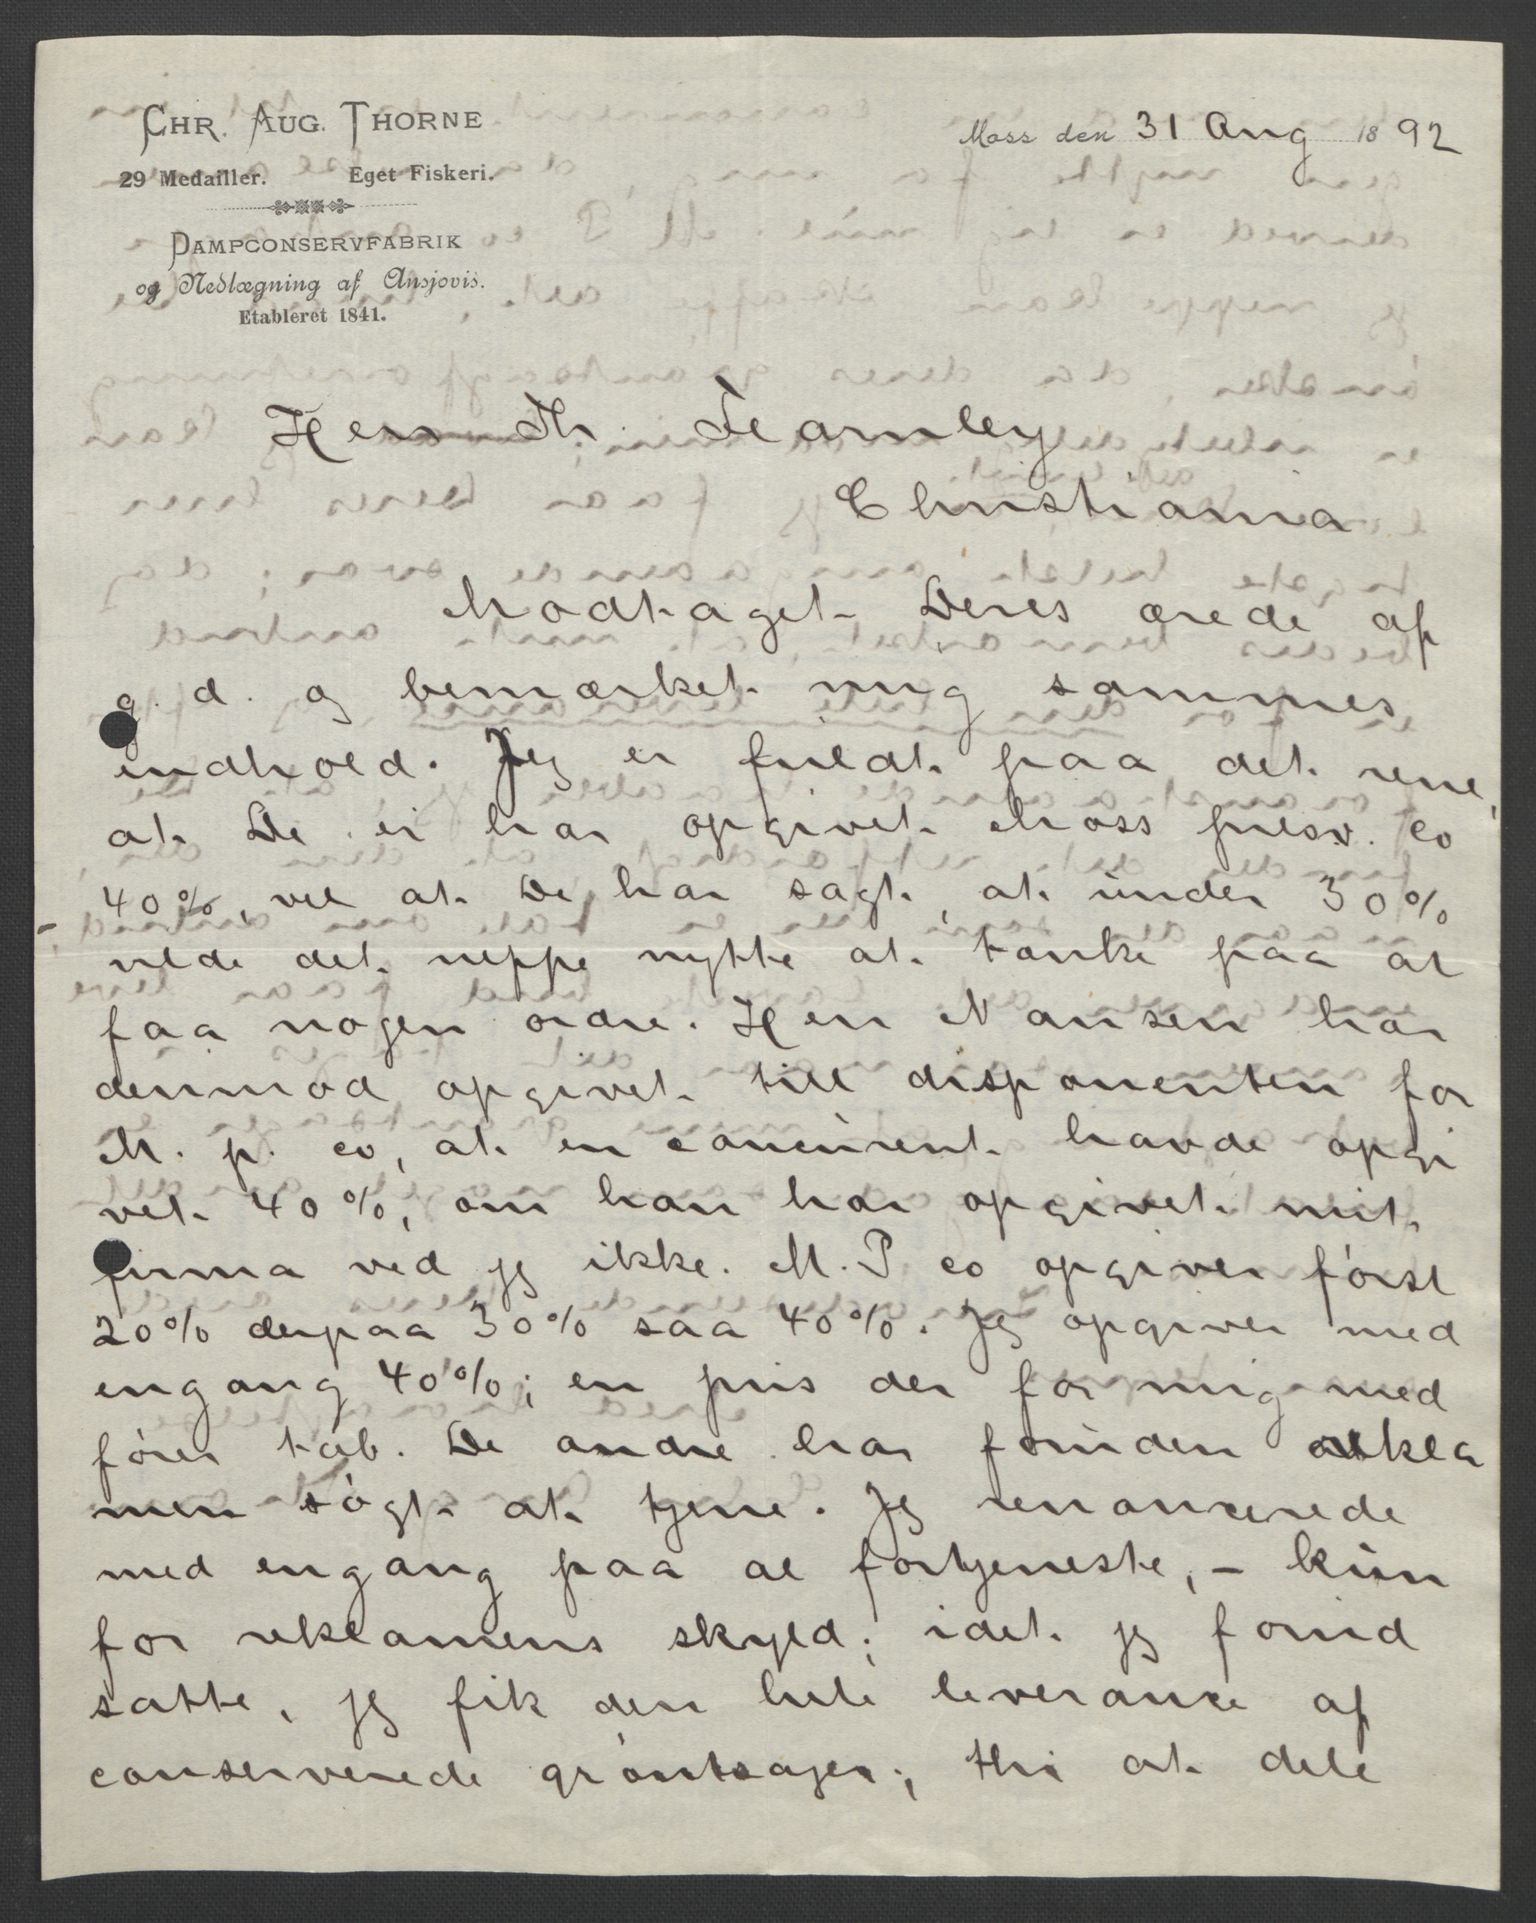 CHR. AUG. THORNE
29 Medailler. Eget Fiskeri.
DAMPCONSERVFABRIK
og Nedlægning af Ansjovis.
Etableret 1841.
Moss den 31 Aug 1892
Herr Th. Fearnley
Christiania
Modtaget Deres ærede af
g. d. og bemærket mig sammes
indhold. Jeg er fuldt paa det rene,
at De ei har opgivet Moss presv. co
40%, vel at De har sagt, at under 30%
vilde det neppe nytte at tænke paa at
faa nogen ordre. Herr Nansen har
derimod opgivet till disponenten for
M. p. co, at en concurrent havde opgi
vet 40%, om han har opgivet mit
firma ved jeg ikke. M. P co opgiver først
20% derpaa 30% saa 40%. Jeg opgiver med
engang 40%; en pris der for mig med
fører tab. De andre har foruden rekla
men søgt at tjene. Jeg renoncerede
med engang paa al fortjeneste, - kun
for reklamens skyld; idet jeg forud
satte, jeg fik den hele leverance af
conserverede grøntsager; thi at dele